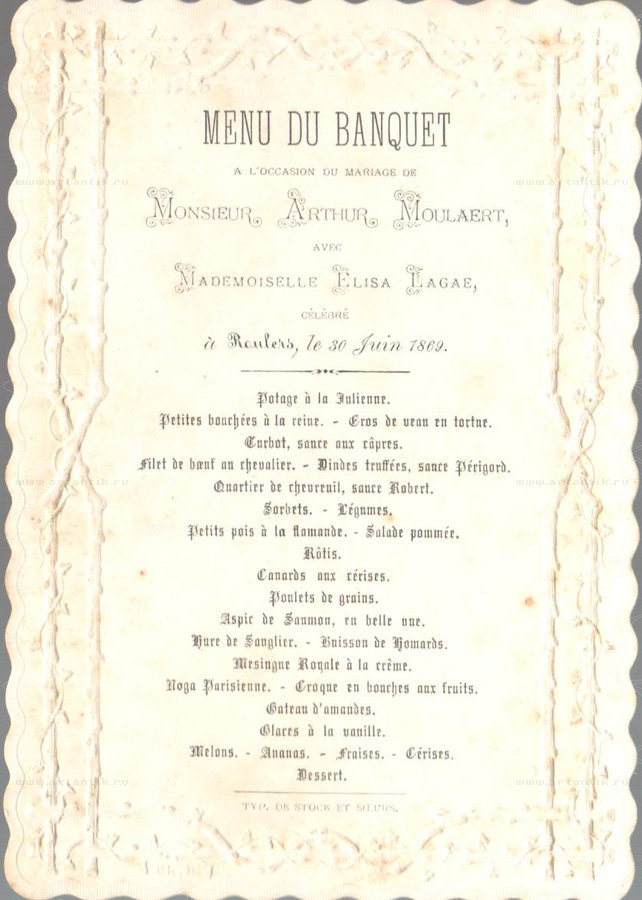 MENU DU BANQUET
A L'OCCASION DU MARIAGE DE
MONSIEUR ARTHUR MOULAERT,
AVEC
MADEMOISELLE ELISA LAGAE,
CÉLÉBRÉ
à Roulers, le 30 Juin 1869.
Potage à la Julienne.
Petites bouchées à la reine. - Gros de veau en tortue.
Turbot, sauce aux câpres.
Filet de bœuf au chevalier. - Dindes truffées, sauce Périgord.
Quartier de chevreuil, sauce Robert.
Sorbets. - Légumes.
Petits pois à la flamande. - Salade pommée.
Rôtis.
Canards aux cérises.
Poulets de grains.
Aspic de Saumon, en belle vue.
Hure de Sanglier. - Buisson de Homards.
Mesingue Royale à la crême.
Noga Parisienne. - Croque en bouches aux fruits.
Gateau d'amandes.
Glaces à la vanille.
Melons. - Ananas. - Fraises. - Cérises.
Dessert.
TYP. DE STOCK ET SŒURS.
www.artantik.ru